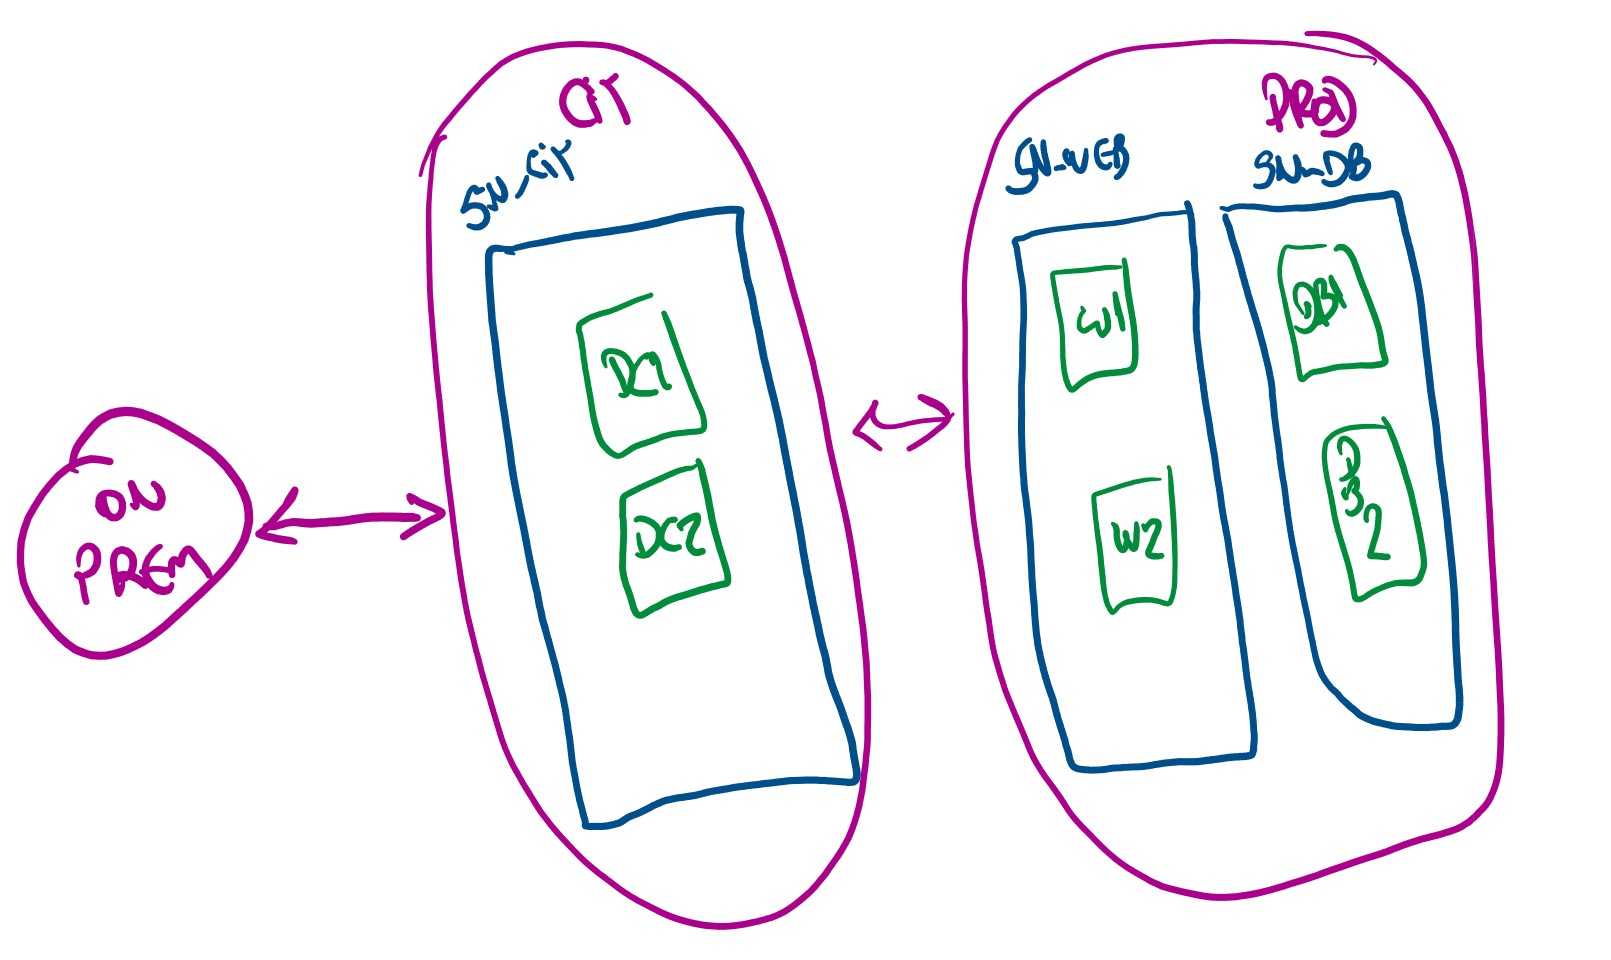 ON
PREM
CIT
SN_CIT
DC1
DC2
PROD
SN_WEB
W1
W2
SN_DB
DB1
DB2